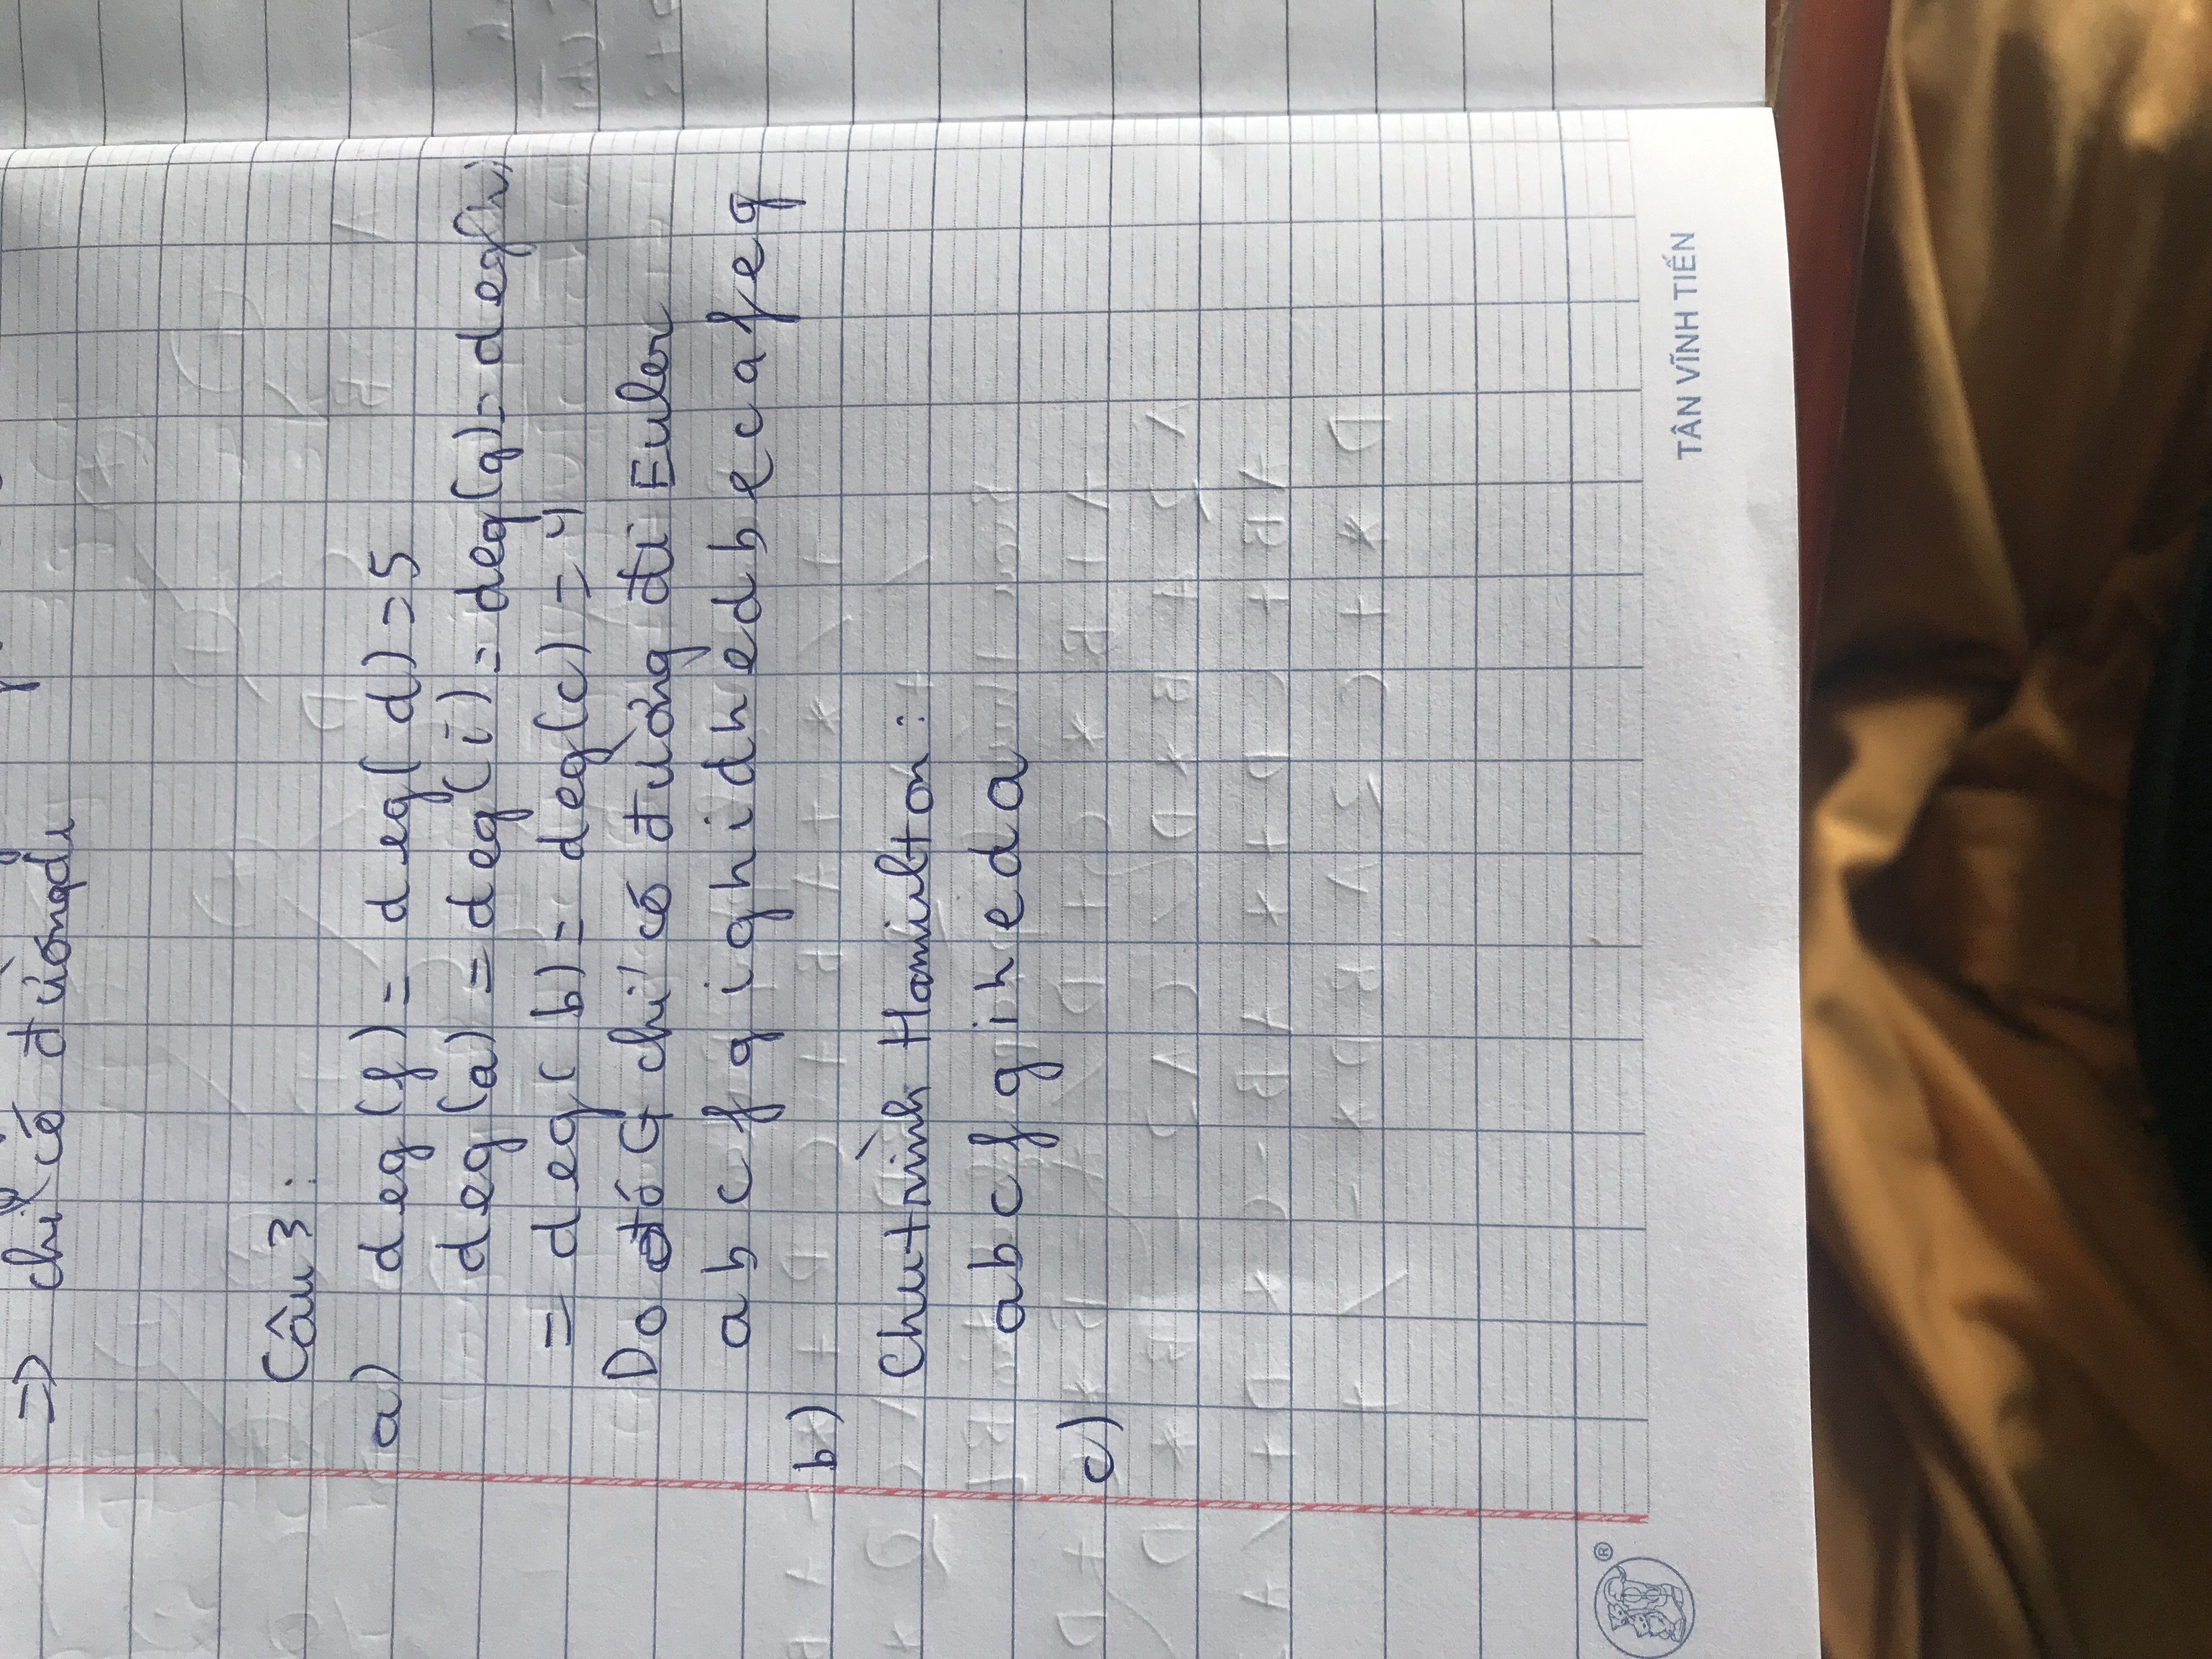 => chỉ có đường đi
Câu 3:
a) deg(f) = deg(d) = 5
deg(a) = deg(i) = deg(g) = deg(h)
= deg(b) = deg(c) = 4
Do đó G chỉ có đường đi Euler
a b c f g i g h i d h e d b e c a f e g
b)
Chu trình Hamilton:
a b c f g i h e d a
c)
®
TÂN VĨNH TIẾN